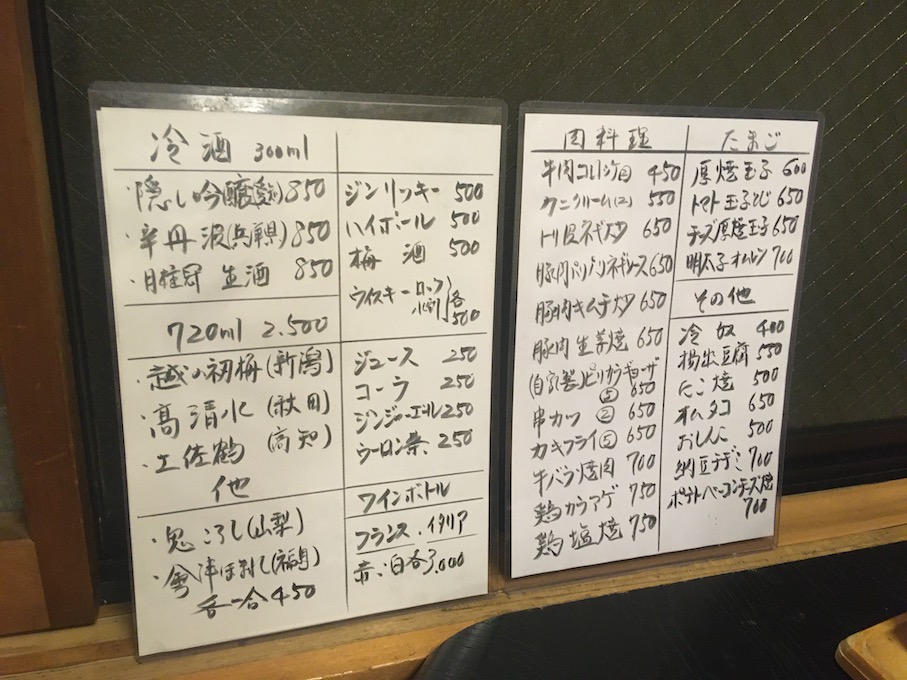 冷酒 300ml
・隠し吟醸 850
・辛丹波(兵庫県)850
・月桂冠 生酒 850
720ml 2.500
・越の初梅(新潟)
・髙清水(秋田)
・土佐鶴(高知)
他
・鬼ころし(山梨)
・會津ほまれ(福島)
各一合450
ジンリッキー 500
ハイボール 500
梅酒 500
ウイスキーロック
水割
各500
ジュース 250
コーラ 250
ジンジャーエール250
ウーロン茶 250
ワインボトル
フランス.イタリア
赤.白各3.000
肉料理
牛肉コロッケ② 450
カニクリーム(二) 550
トリ皮ネギ炒 650
豚肉パリパリネギソース650
豚肉キムチ炒 650
豚肉生姜焼 650
(自家製)ピリカラギョーザ
⑤ 650
串カツ ② 650
カキフライ⑤ 650
牛バラ焼肉 700
鶏カラアゲ 750
鶏塩焼 750
たまご
厚焼玉子 600
トマト玉子とじ 650
チーズ厚焼玉子 650
明太子オムレツ 700
その他
冷奴 400
揚出豆腐 550
たこ焼 500
オムタコ 650
おしんこ 500
納豆 700
ポテトベーコンチーズ焼
700